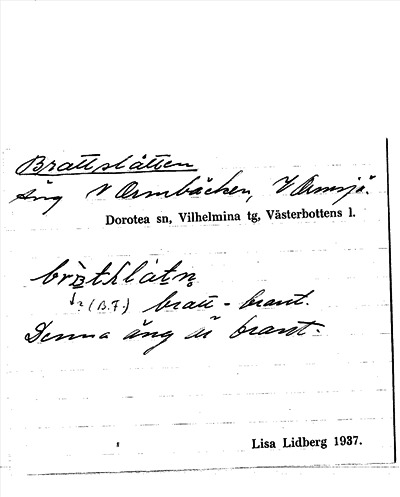 Brattslåtten
Äng V Ormbäcken, V Ormsjö.
Dorotea sn, Vilhelmina tg, Västerbottens l.
? (B.F.) bratt - brant.
Denna äng är brant.
Lisa Lidberg 1937.